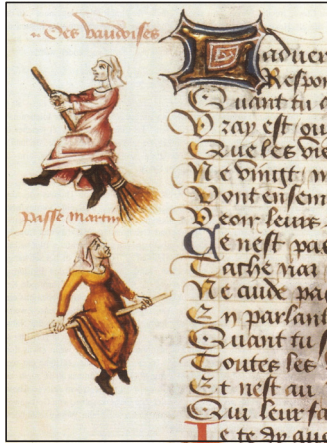 Des vaudoises
aduer
Respon
Quant tu
Vray est ou
Que les vie
Ne vingt m
Vont ensem
Veoir leurs
passe martin
Ce nest pas
Cathe nar
Ne cuide pas
En parlant
Quant tu
Toutes les
Et nest au
Qui leur fa
Je te dy que